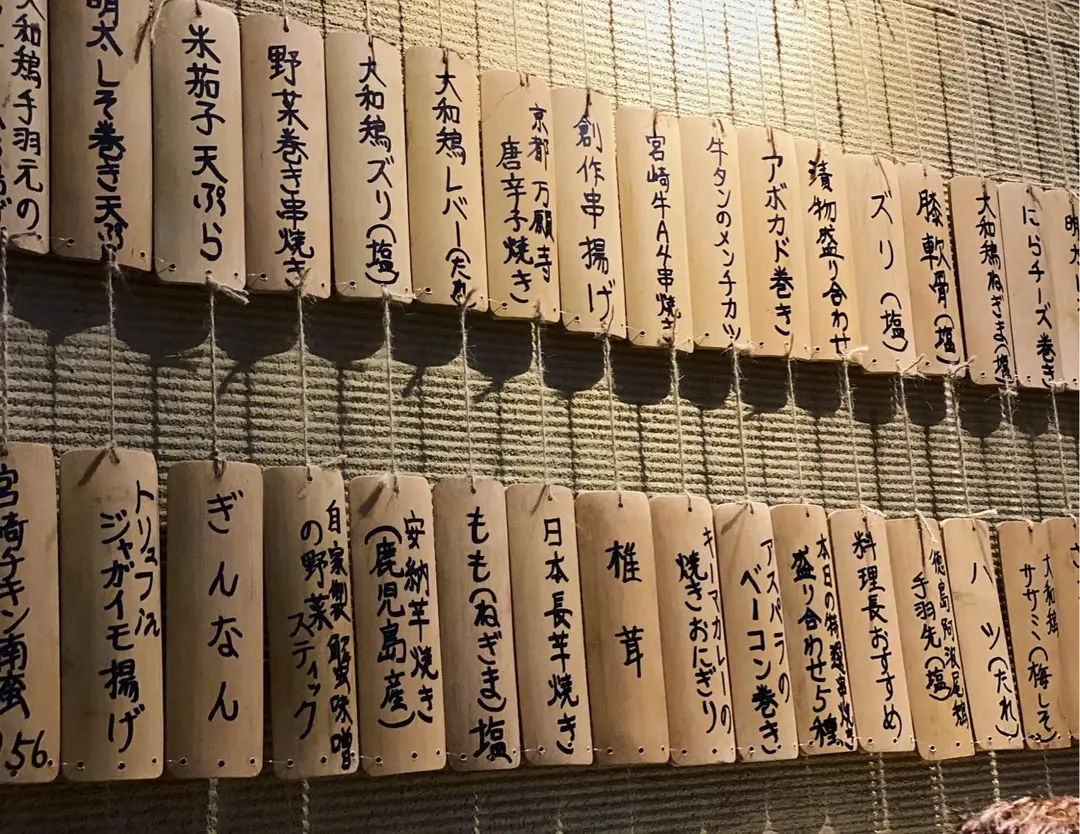 大和鶏手羽元の
明太しそ巻き天ぷ
米茄子天ぷら
野菜巻き串焼き
大和鶏ズリ(塩)
大和鶏レバー(たれ
京都万願寺
唐辛子焼き
創作串揚げ
宮崎牛A4串焼き
牛タンのメンチカツ
アボカド巻き
漬物盛り合わせ
ズリ(塩)
膝軟骨(塩)
大和鶏ねぎま(塩
にらチーズ巻き
明太
宮崎チキン南蛮
156.
トリュフ流
ジャガイモ揚げ
ぎんなん
自家製蟹味噌
の野菜
スティック
安納芋焼き
(鹿児島産)
もも(ねぎま)塩
日本長芋焼き
椎茸
キーマカレーの
焼きおにぎり
アスパラの
ベーコン巻き
本日の特選串焼き
盛り合わせ5種
料理長おすすめ
徳島阿波尾鶏
手羽先(塩)
ハツ(たれ)
大和鶏
ササミ(梅しそ)